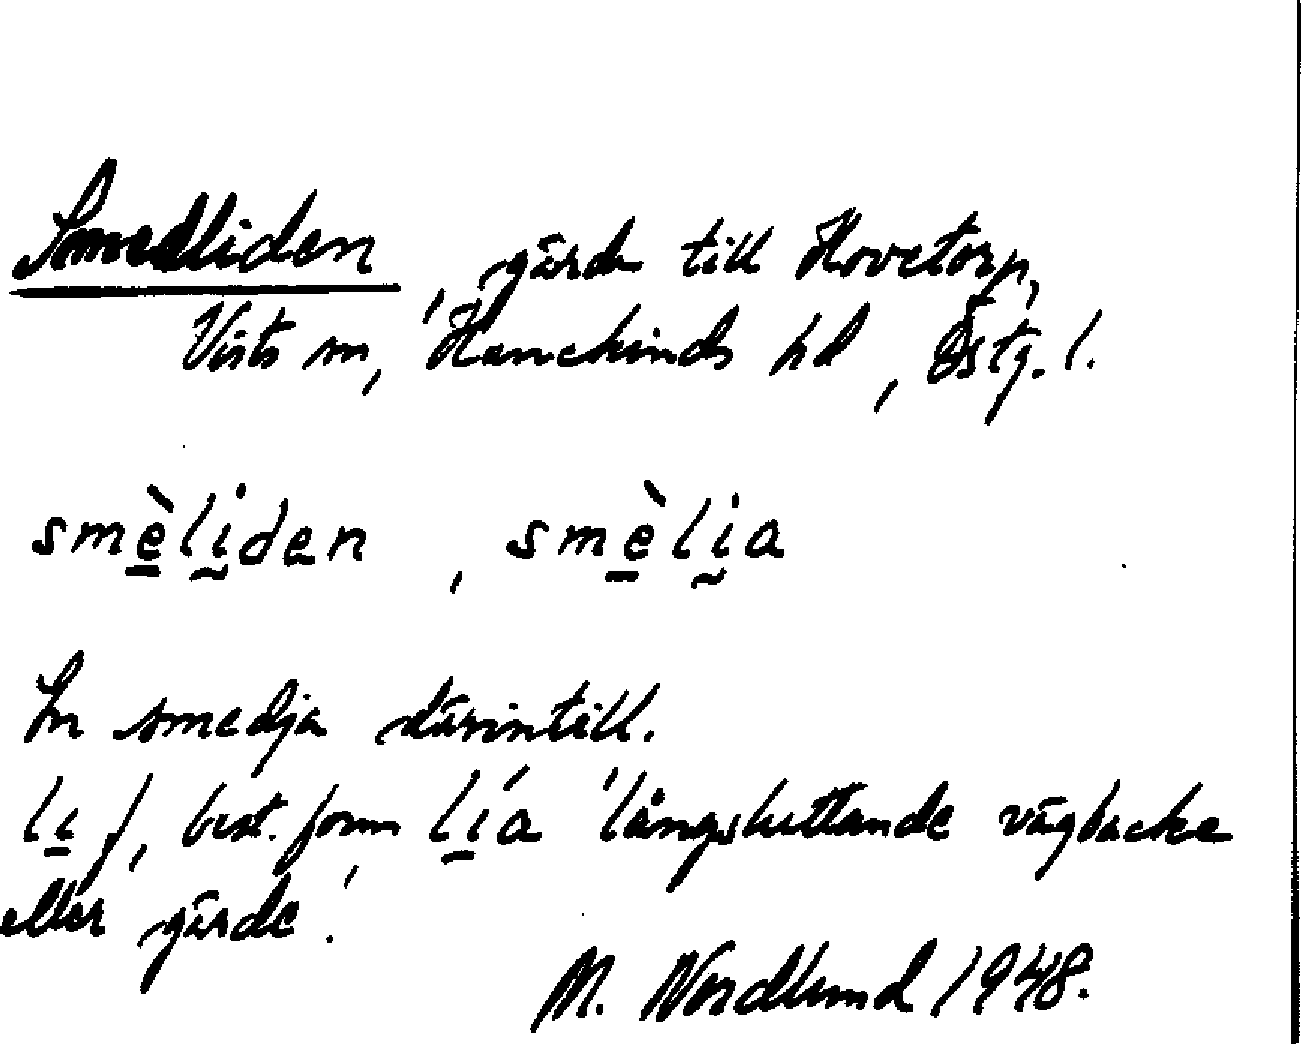 Smedliden, gärde till Hovetorp,
Vists sn, Hanekinds hd, Östg. l.
smè̲lḭden, smè̲lḭa
En smedja därintill.
li̲ f, best. form lí̲a 'långsluttande vägbacke
eller gärde'.
M. Nordlund 1948.